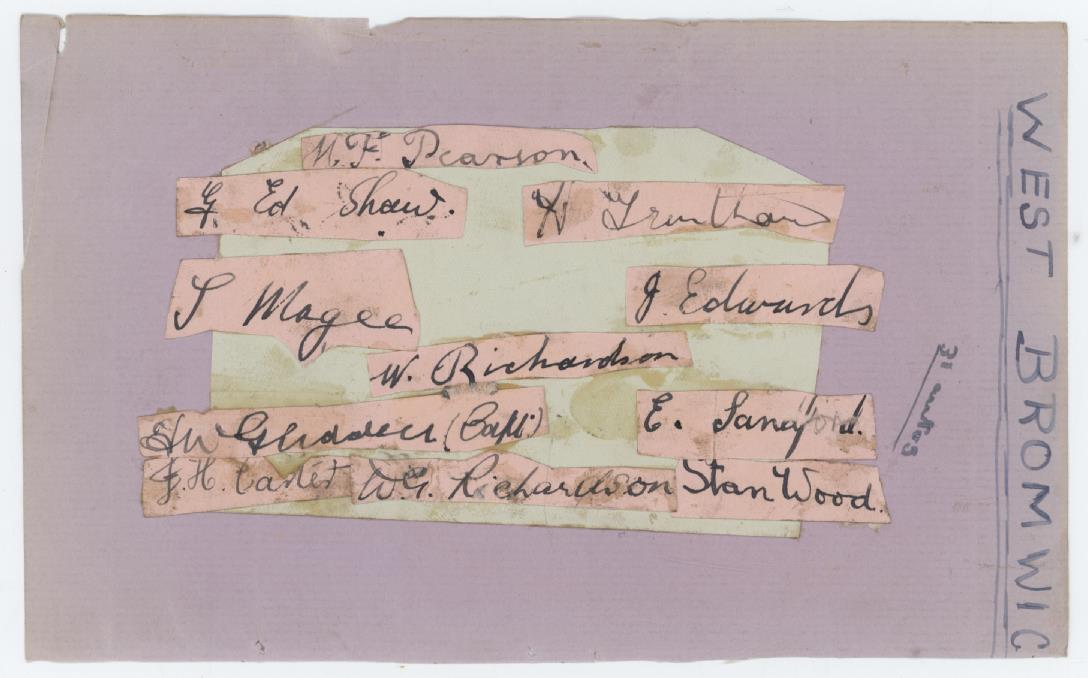 H. F. Pearson.
G. Ed Shaw.
H Trentham
T Magee
J. Edwards
W. Richardson
HW Glidden (Capt.)
E. Sandford.
F.H. Carter
W.G. Richardson
Stan Wood.
WEST BROMWIC
31 autos